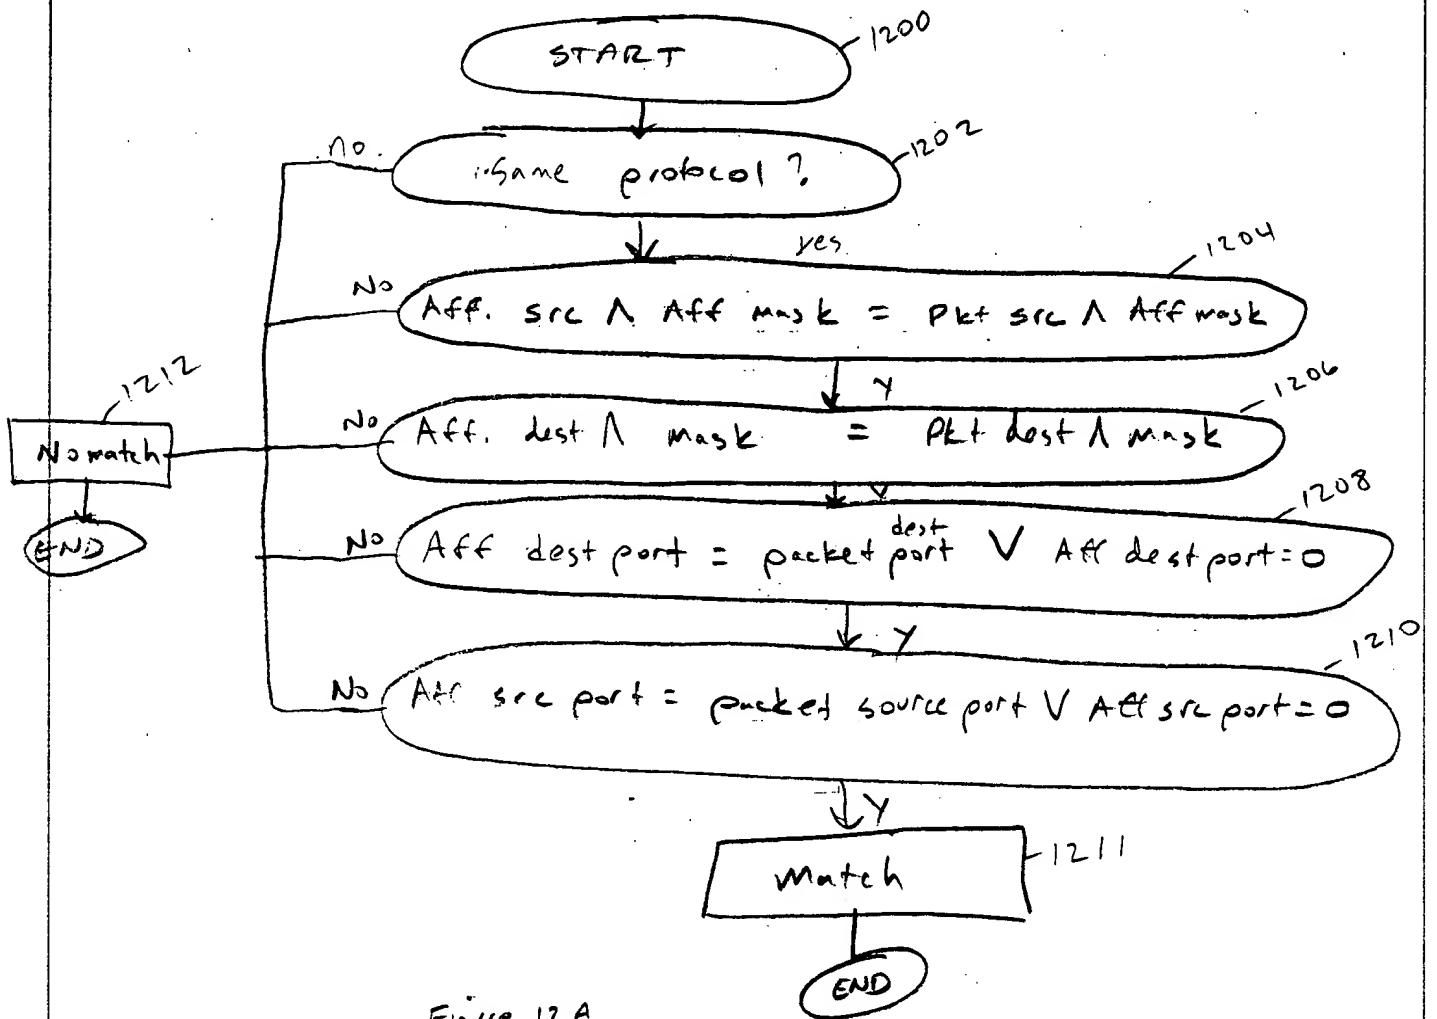 START
1200
no.
Same protocol?
1202
yes
1204
No
Aff. src Λ Aff mask = Pkt src Λ Aff mask
Y
1206
1212
No match
END
No
Aff. dest Λ mask = Pkt dest Λ mask
Y
1208
No
dest
Aff dest port = packet port V Aff dest port = 0
Y
1210
No
Aff src port = packet source port V Aff src port = 0
Y
Match
1211
END
Figure 12A